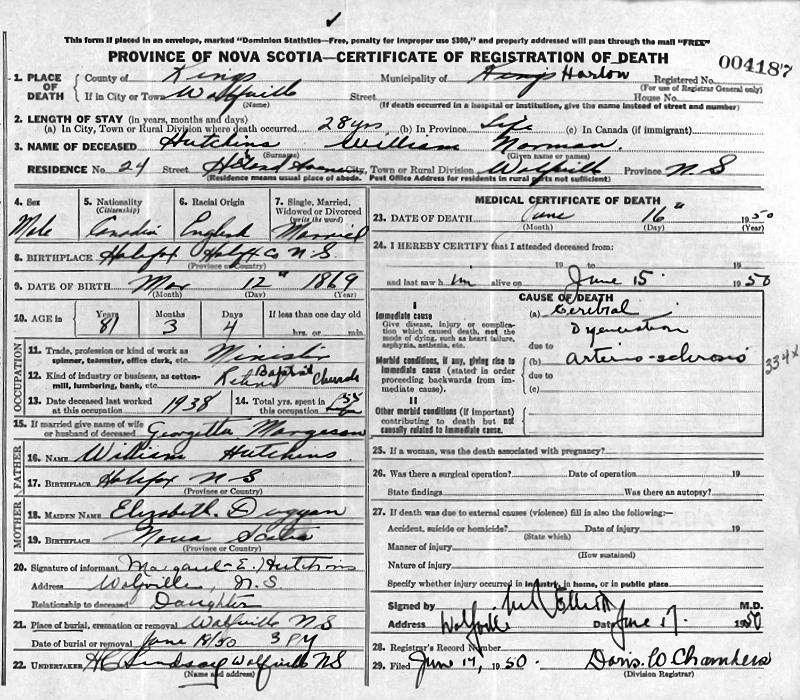 This form if placed in an envelope, marked "Dominion Statistics—Free, penalty for improper use $300," and properly addressed will pass through the mail "FREE"
PROVINCE OF NOVA SCOTIA—CERTIFICATE OF REGISTRATION OF DEATH
004187
1. PLACE OF DEATH County of Kings Municipality of Kings Horton Registered No.
(For use of Registrar General only)
If in City or Town Wolfville Street House No.
(Name) (If death occurred in a hospital or institution, give the name instead of street and number)
2. LENGTH OF STAY (in years, months and days)
(a) In City, Town or Rural Division where death occurred 28 yrs (b) In Province Life (c) In Canada (if immigrant)
3. NAME OF DECEASED Hutchins William Norman.
(Surname) (Given name or names)
RESIDENCE No. 24 Street Highland City, Town or Rural Division Wolfville Province N S
(Residence means usual place of abode. Post Office Address for residents in rural parts not sufficient)
4. Sex 5. Nationality (Citizenship) 6. Racial Origin 7. Single, Married, Widowed or Divorced (write the word)
Male Canadian English Married
8. BIRTHPLACE Halifax Halifx Co N-S.
(Province or Country)
9. DATE OF BIRTH Mar 12" 1869
(Month) (Day) (Year)
10. AGE in Years Months Days If less than one day old
81 3 4 hrs. or min.
OCCUPATION
11. Trade, profession or kind of work as spinner, teamster, office clerk, etc. Minister
12. Kind of industry or business, as cotton-mill, lumbering, bank, etc. Retired Baptist Church
13. Date deceased last worked at this occupation 1938 14. Total yrs. spent in this occupation
15. If married give name of wife or husband of deceased Georgetta Margeson
FATHER
16. NAME William Hutchins.
17. BIRTHPLACE Halifax N S
(Province or Country)
MOTHER
18. MAIDEN NAME Elizabeth Duggan
19. BIRTHPLACE Nova Scotia
(Province or Country)
20. Signature of informant Margaret E. Hutchins
Address Wolfville, N. S.
Relationship to deceased Daughter
21. Place of burial, cremation or removal Wolfville N S
Date of burial or removal June 18/50 3 PM
22. UNDERTAKER H C Lindsay Wolfville NS
(Name and address)
MEDICAL CERTIFICATE OF DEATH
23. DATE OF DEATH June 16" 1950
(Month) (Day) (Year)
24. I HEREBY CERTIFY that I attended deceased from:
19 to 19
and last saw him alive on June 15 1950
CAUSE OF DEATH
I
Immediate cause
Give disease, injury or complication which caused death, not the mode of dying, such as heart failure, asphyxia, asthenia, etc.
(a) Cerebral Degeneration
due to
Morbid conditions, if any, giving rise to immediate cause (stated in order proceeding backwards from immediate cause).
(b) arterio-sclerosis
due to
(c)
334x
II
Other morbid conditions (if important) contributing to death but not causally related to immediate cause.
25. If a woman, was the death associated with pregnancy?
26. Was there a surgical operation? Date of operation 19
State findings Was there an autopsy?
27. If death was due to external causes (violence) fill in also the following:—
Accident, suicide or homicide? Date of injury 19
(State which)
Manner of injury
(How sustained)
Nature of injury
Specify whether injury occurred in industry, in home, or in public place
Signed by Elliott M.D.
Address Wolfville Date June 17. 1950
28. Registrar's Record Number
29. Filed June 17, 1950. Doris. W Chambers
(Division Registrar)